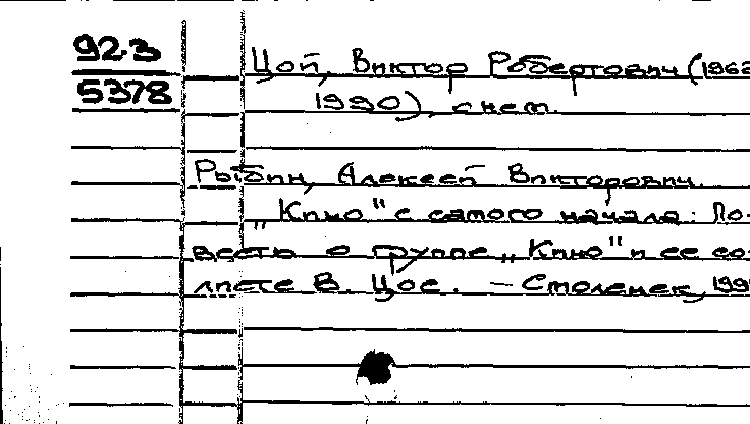 92.3
5378
Цой, Виктор Робертович (1962
1990), с нет.
Рыбин, Алексей Викторович.
„Кино" с самого начала: По-
весть о группе „Кино" и ее со-
листе В. Цое. — Смоленск, 199